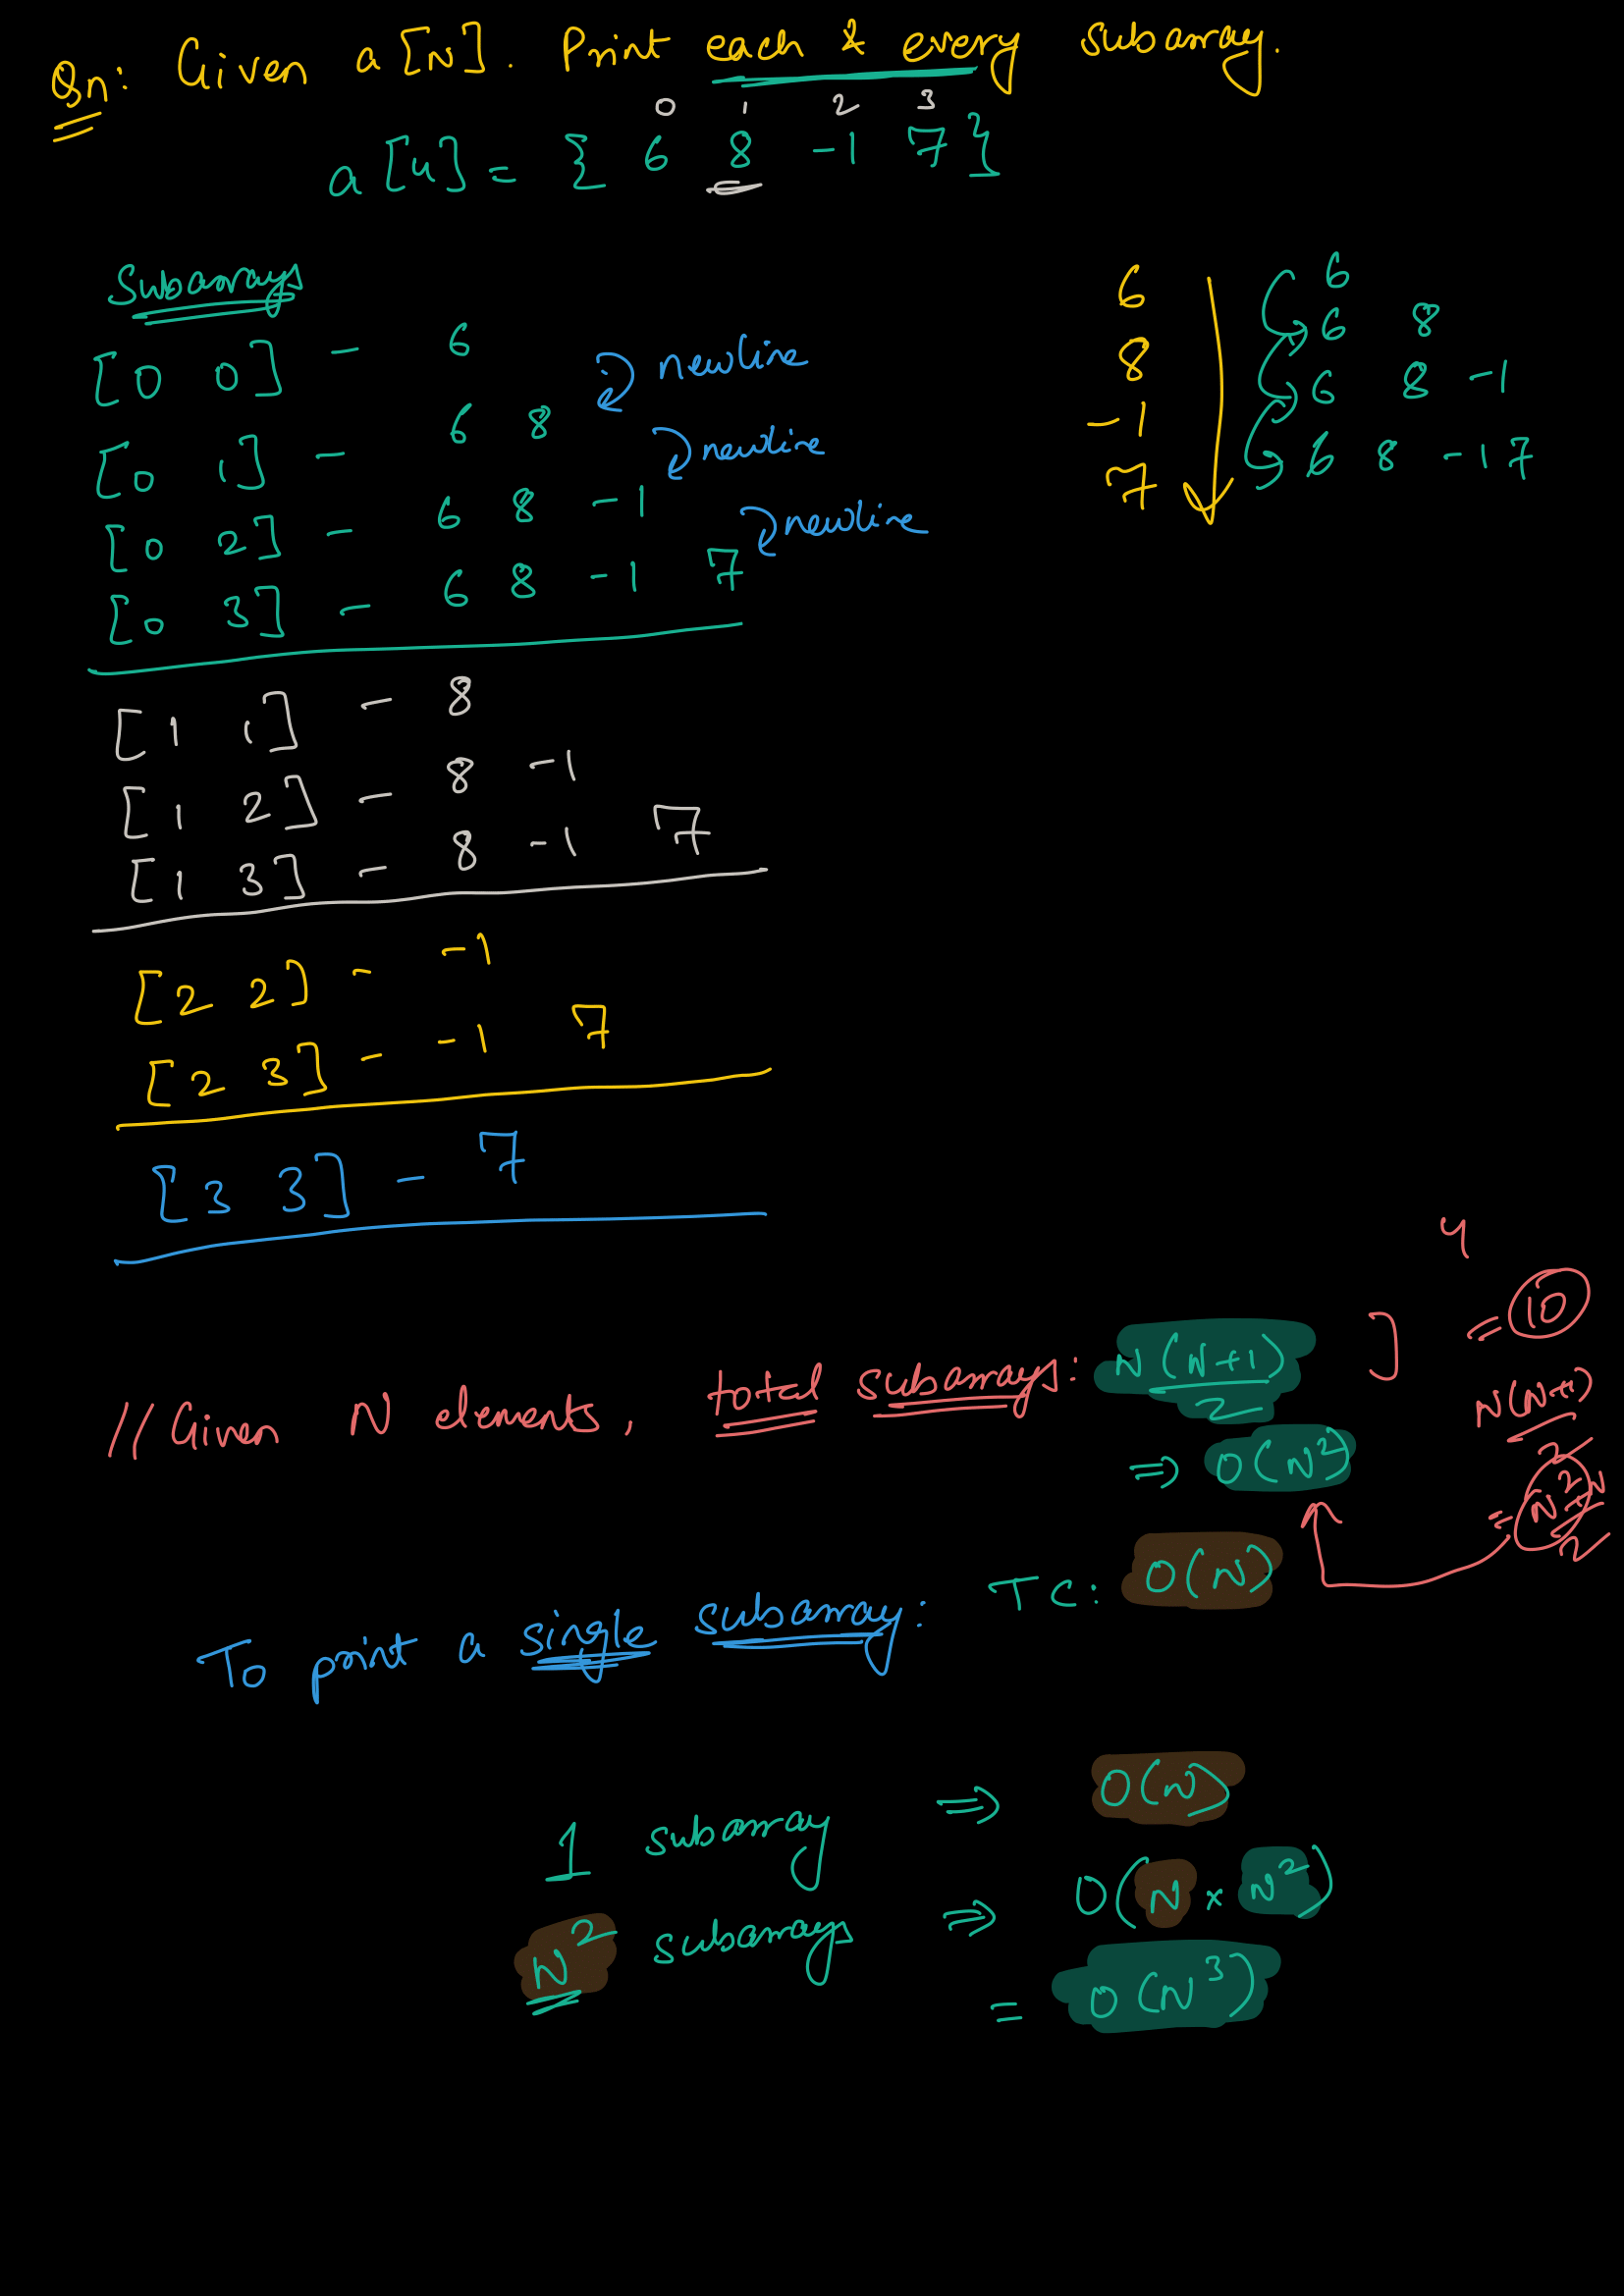 Qn: Given a[N]. Print each & every subarray.
0 1 2 3
a[4] = { 6 8 -1 7 }
Subarrays
[0 0] - 6
newline
[0 1] - 6 8
newline
[0 2] - 6 8 -1
newline
[0 3] - 6 8 -1 7
6
8
-1
7
6
6 8
6 8 -1
6 8 -1 7
[1 1] - 8
[1 2] - 8 -1
[1 3] - 8 -1 7
[2 2] - -1
[2 3] - -1 7
[3 3] - 7
// Given N elements, total subarrays: N(N+1)
2
] = 10
4
⇒ O(N²)
N(N+1)
2
= N²+N
2
To print a single subarray: TC: O(N)
1 subarray ⇒ O(N)
N² subarrays ⇒ O(N × N²)
= O(N³)